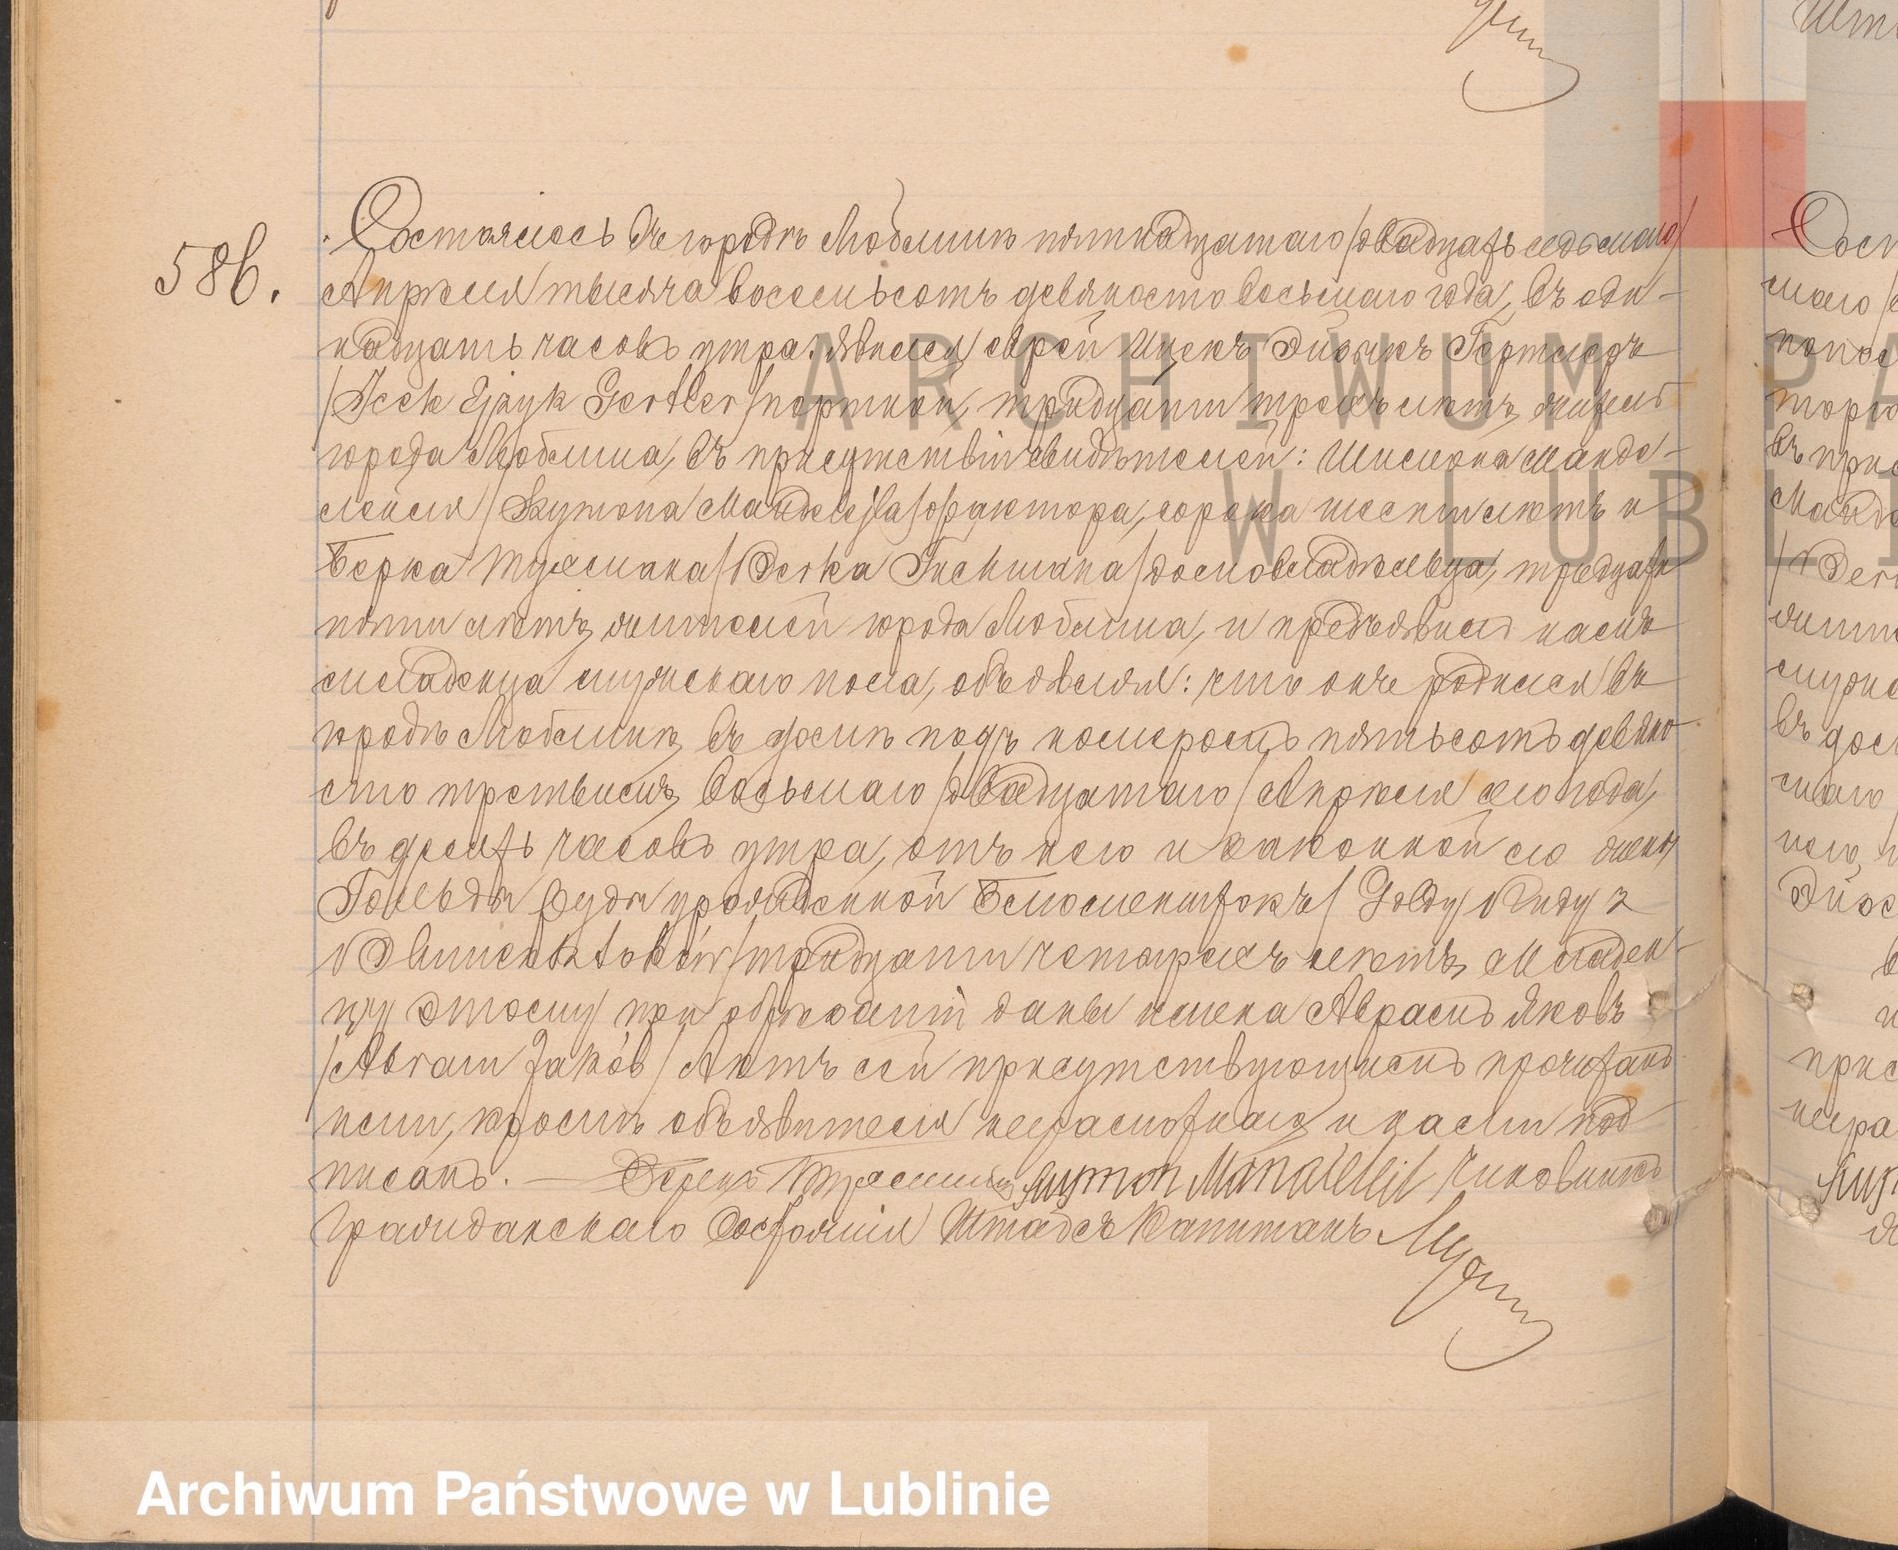 586.
Состоялось въ городѣ Люблинѣ пятнадцатаго /двадцать седьмаго/
Апрѣля тысяча восемьсотъ девяносто восьмаго года, въ оди-
надцать часовъ утра. Явился еврей Ицекъ Эйзыкъ Гертлеръ
/Icek Ejzyk Gertler/ портной, тридцати трехъ лѣтъ, житель
города Люблина, въ присутствіи свидѣтелей: Шимона Манде-
лейля /Szymona Mandelejla/ фактора, сорока шести лѣтъ и
Берка Тухмана /Berka Tuchmana/ домовладѣльца, тридцати
пяти лѣтъ, жителей города Люблина, и предъявилъ намъ
младенца мужскаго пола, объявляя: что онъ родился въ
городѣ Люблинѣ, въ домѣ подъ номеромъ пятьсотъ девяно-
сто третьимъ, восьмаго /двадцатаго/ Апрѣля сего года,
въ десять часовъ утра, отъ него и законной его жены
Гольды Руды урожденной /Goldy Rudy z
тридцати четырехъ лѣтъ, Младен-
цу этому при обрѣзаніи даны имена Аврамъ Яковъ
/Abram Jakób/ Актъ сей присутствующимъ прочитанъ
ими, кромѣ объявителя неграмотнаго и нами под-
писанъ. — Берекъ Тухманъ Szymon Mandellejl Чиновникъ
Гражданскаго Состоянія Штабсъ Капитанъ
Archiwum Państwowe w Lublinie